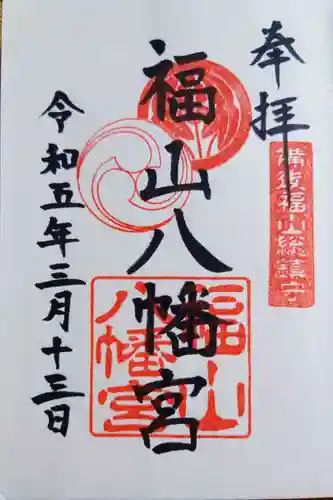 奉拝
備後福山総鎮守
福山八幡宮
福山八幡宮
令和五年三月十三日